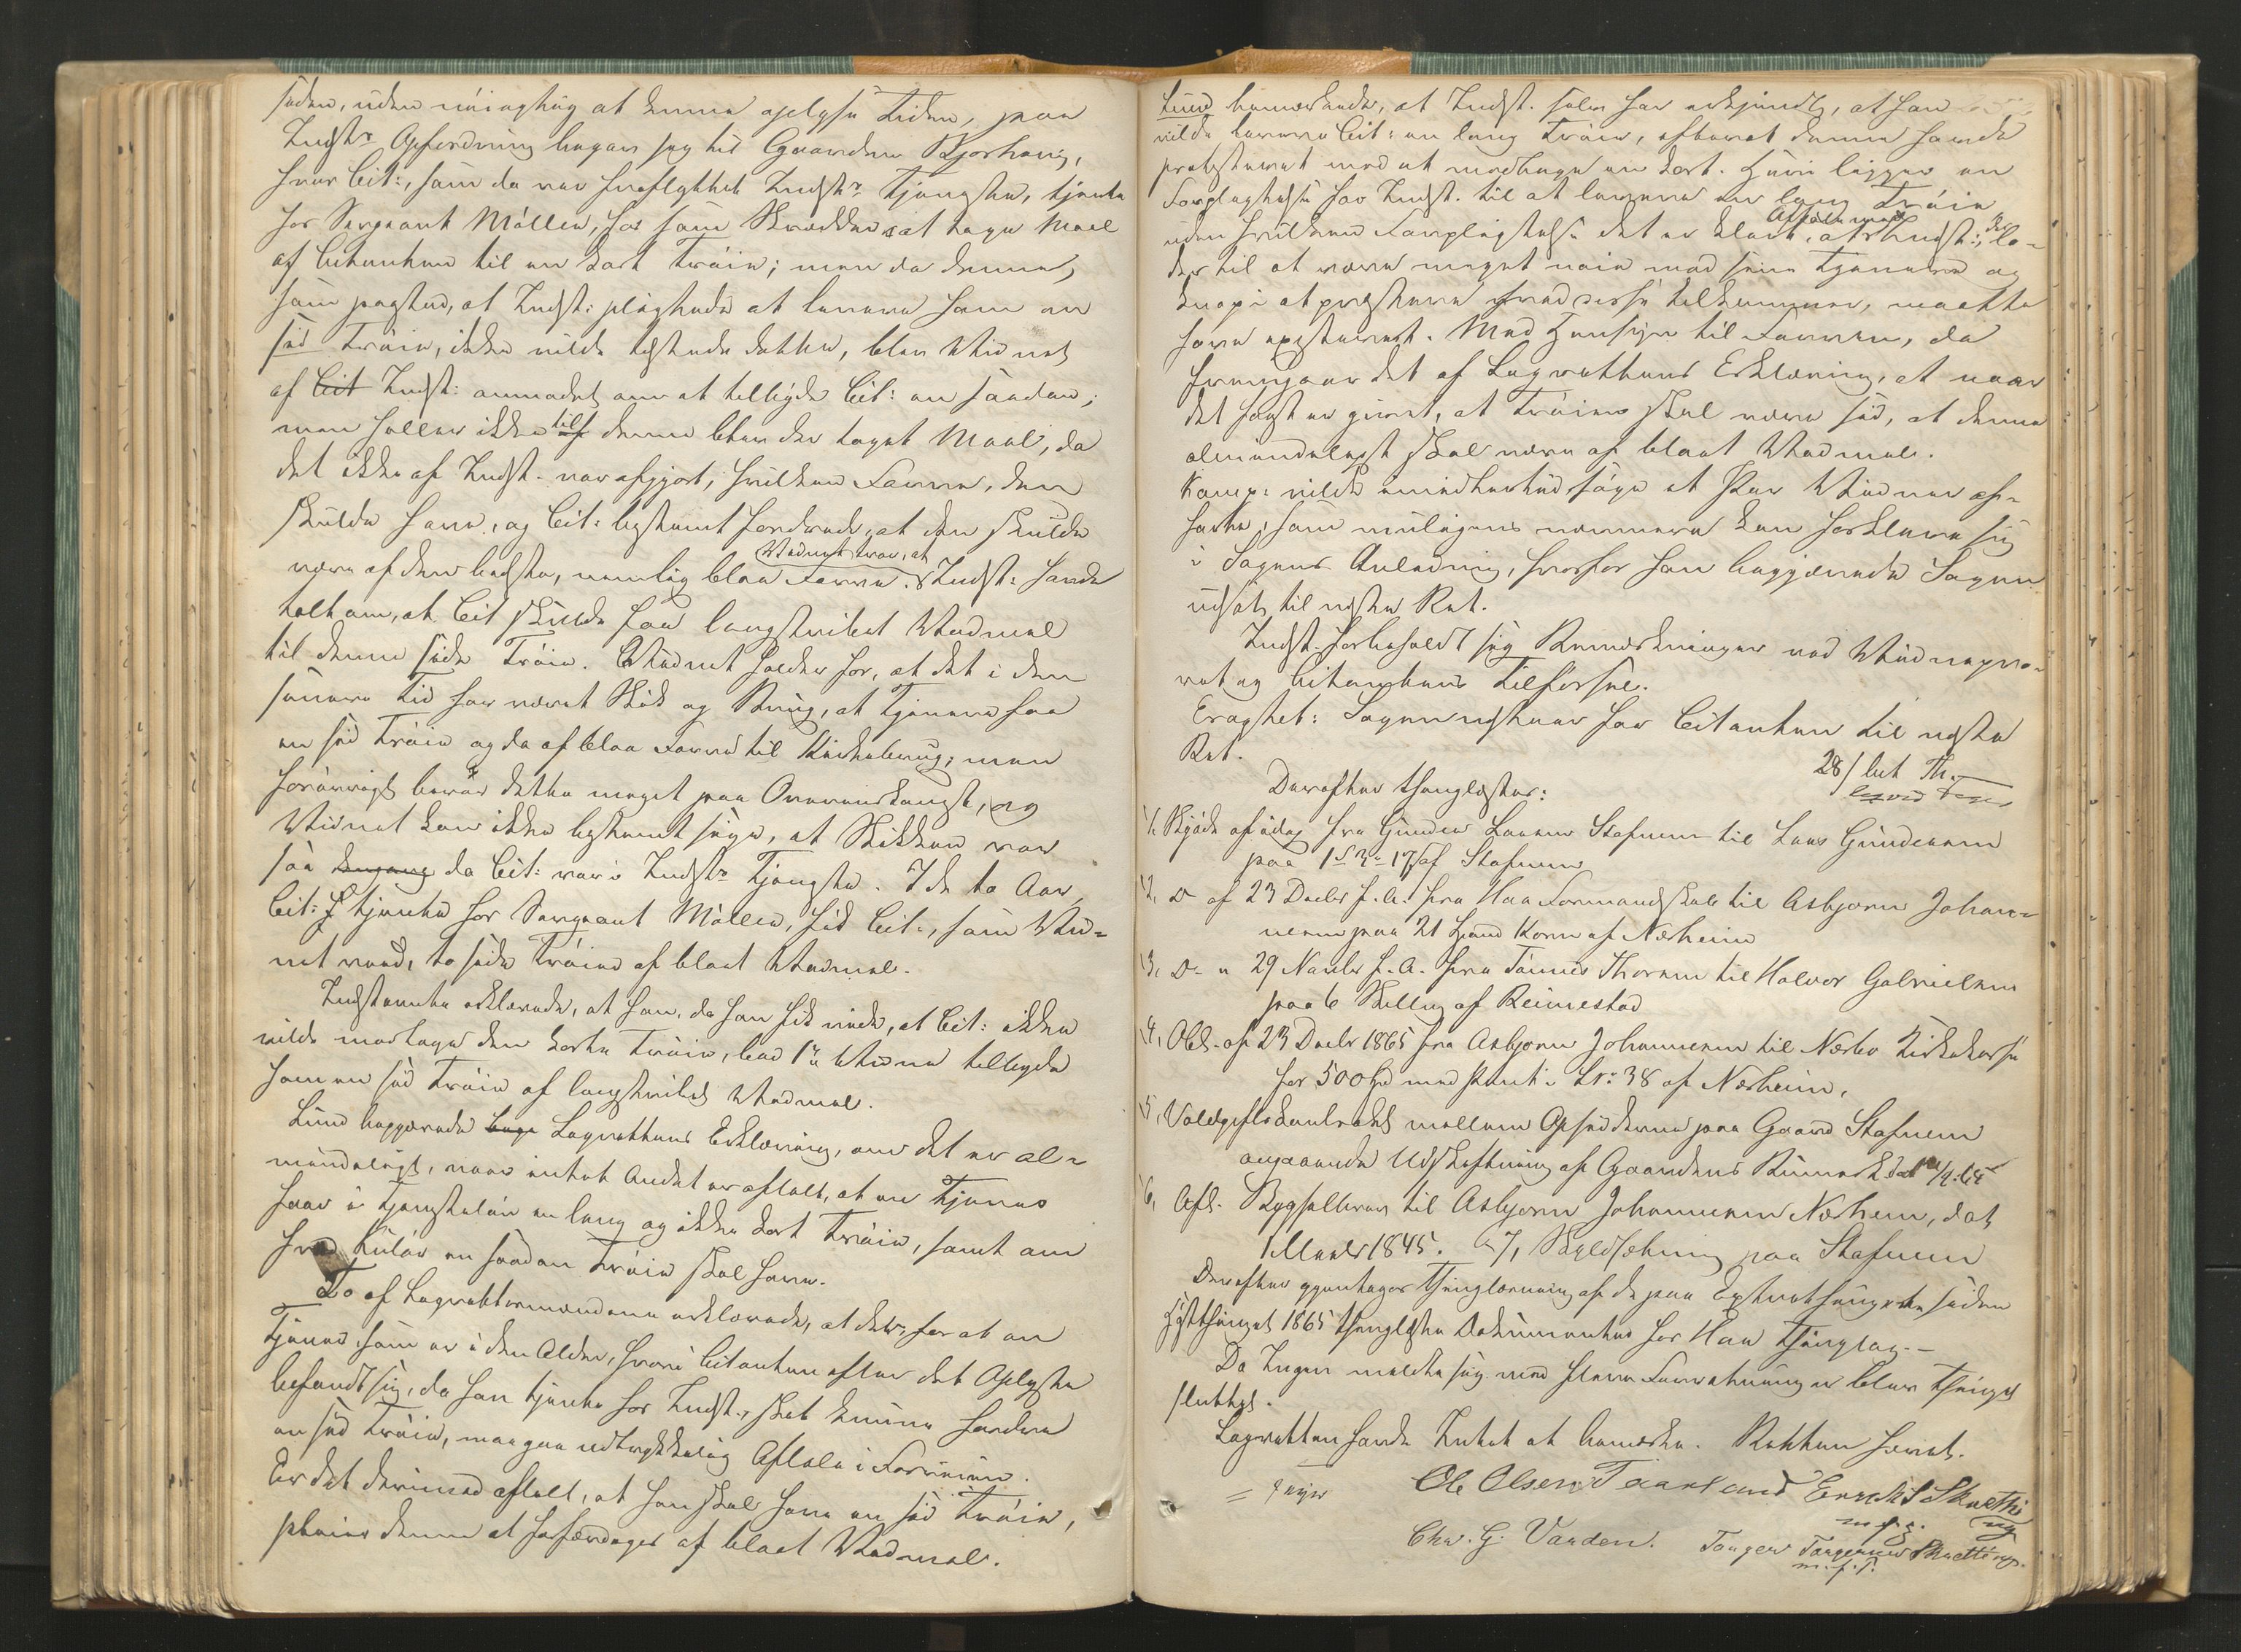 siden, uden nöiagtig at kunne oplyse Tiden, paa
Indst:s Opfordring begav sig til Gaarden Bjorhaug,
hvor Cit:, som da var fraflyttet Indst:s Tjeneste, tjente
hos Sergeant Möller, for som Skrædder at tage Maal
af Citanten til en kort Tröie; men da denne,
som paastod, at Indst: pligtede at levere ham en
sid Tröie, ikke vilde tilstede dette, blev Vidnet
af Cit Indst: anmodet om at tilbyde Cit: en saadan;
men heller ikke til denne blev der taget Maal, da
det ikke af Indst. var afgjort, hvilken Farve, den
skulde have, og Cit: bestemt fordrede, at den skulde
være af den bedste, nemlig blaa Farve. Vidnet tror, at Indst: havde
talt om, at Cit skulde faa langstribet Vadmel
til denne side Tröie. Vidnet holder for, at det i den
senere Tid har været Skik og Brug, at Tjenere faa
en sid Tröie og da af blaa Farve til Kirkebrug; men
forövrigt beror dette meget paa Overenskomst, og
Vidnet kan ikke bestemt sige, at Skikken var
saa da Cit: var i Indst:s Tjeneste. I de to Aar,
Cit: tjente hos Sergeant Möller, fik Cit:, som Vid-
net veed, to side Tröier af blaat Vadmel.
Indstevnte erklærede, at han, da han fik vide, at Cit: ikke
vilde modtage den korte Tröie, bad 1ste Vidne tilbyde
ham en sid Tröie af langstribet Vadmel.
Lund begjærede Lagrettens Erklæring, om det er al-
mindeligt, naar intet Andet er aftalt, at en Tjener
faar i Tjenestelön en lang og ikke kort Tröie, samt om
hvad Kulör en saadan Tröie skal have.
To af Lagrettesmændene erklærede, at der, for at en
Tjener som er i den Alder, hvori Citanten efter det Oplyste
befandt sig, da han tjente hos Indst., skal kunne fordre
en sid Tröie, maa gaa udtrykkelig Aftale i Forveien.
Er det derimod aftalt, at han skal have en sid Tröie,
pleier denne at forfærdiges af blaat Vadmel.
Lund bemærkede, at Indst. selv har erkjendt, at han
vilde levere Cit: en lang Tröie, efterat denne havde
protesteret mod at modtage en kort. Heri ligger en
Forpligtelse for Indst. til at levere en lang Tröie
uden hvilken Forpligtelse det er klart, at Indst:,
der til at være meget nöie mod sine Tjenere og
knap i at præstere hvad disse tilkommer, maatte
have existeret. Med Hensyn til Farven, da
fremgaar det af Lagrettens Erklæring, at naar
det först er givet, at Tröien skal være sid, at denne
almindeligst skal være af blaat Vadmel.
Komp: vilde imidlertid söge et Par Vidner af-
hørte, som muligens nærmere kan forklare sig
i Sagens Anledning, hvorfor han begjærede Sagen
udsat til næste Ret.
Indst. forbeholdt sig Bemærkninger ved Vidnepro-
vet og Citantens Tilförsel.
Eragtet: Sagen udstaar for Citanten til næste
Ret.
28/ bet Th.
Derefter thinglæstes:
1, Skjöde af idag fra Gunder Larsen Stafnem til Lars Gundersen
paa 1 S 3 17 af Stafnem
2, D af 23 Decbr f. A. fra Haa Formandskab til Asbjorn Johan-
nesen paa 21 Korn af Nærheim
3, D " 29 Novbr f. A. fra Tönnes Thorsen til Halvor Gabrielsen
paa 6 Skilling af Reimestad
4, Obl. af 23 Decbr 1865 fra Asbjorn Johannesen til Nærbo Kirkekasse
for 500 Spd med Pant i Lr: 38 af Nærheim.
5, Voldgiftskontrakt mellem Opsidderne paa Gaard Stafnem
angaaende Udskiftning af Gaardens Udmark dat
6, Afl. Bygselbrev til Asbjorn Johannesen Nærheim, dat
1845. 7, Skyldsetning paa Stafnem
Derefter gjentages Thinglæsning af de paa Extrathingene siden
Höstthinget 1865 thinglæste Dokumenter for Haa Thinglag.-
Da Ingen meldte sig med flere Forretninger blev Thinget
sluttet.
Lagretten havde Intet at bemærke. Retten hævet.
Ole Olsen Taarland
Chr. G. Varden. Torger Torgersen Skretting
m.f.P.